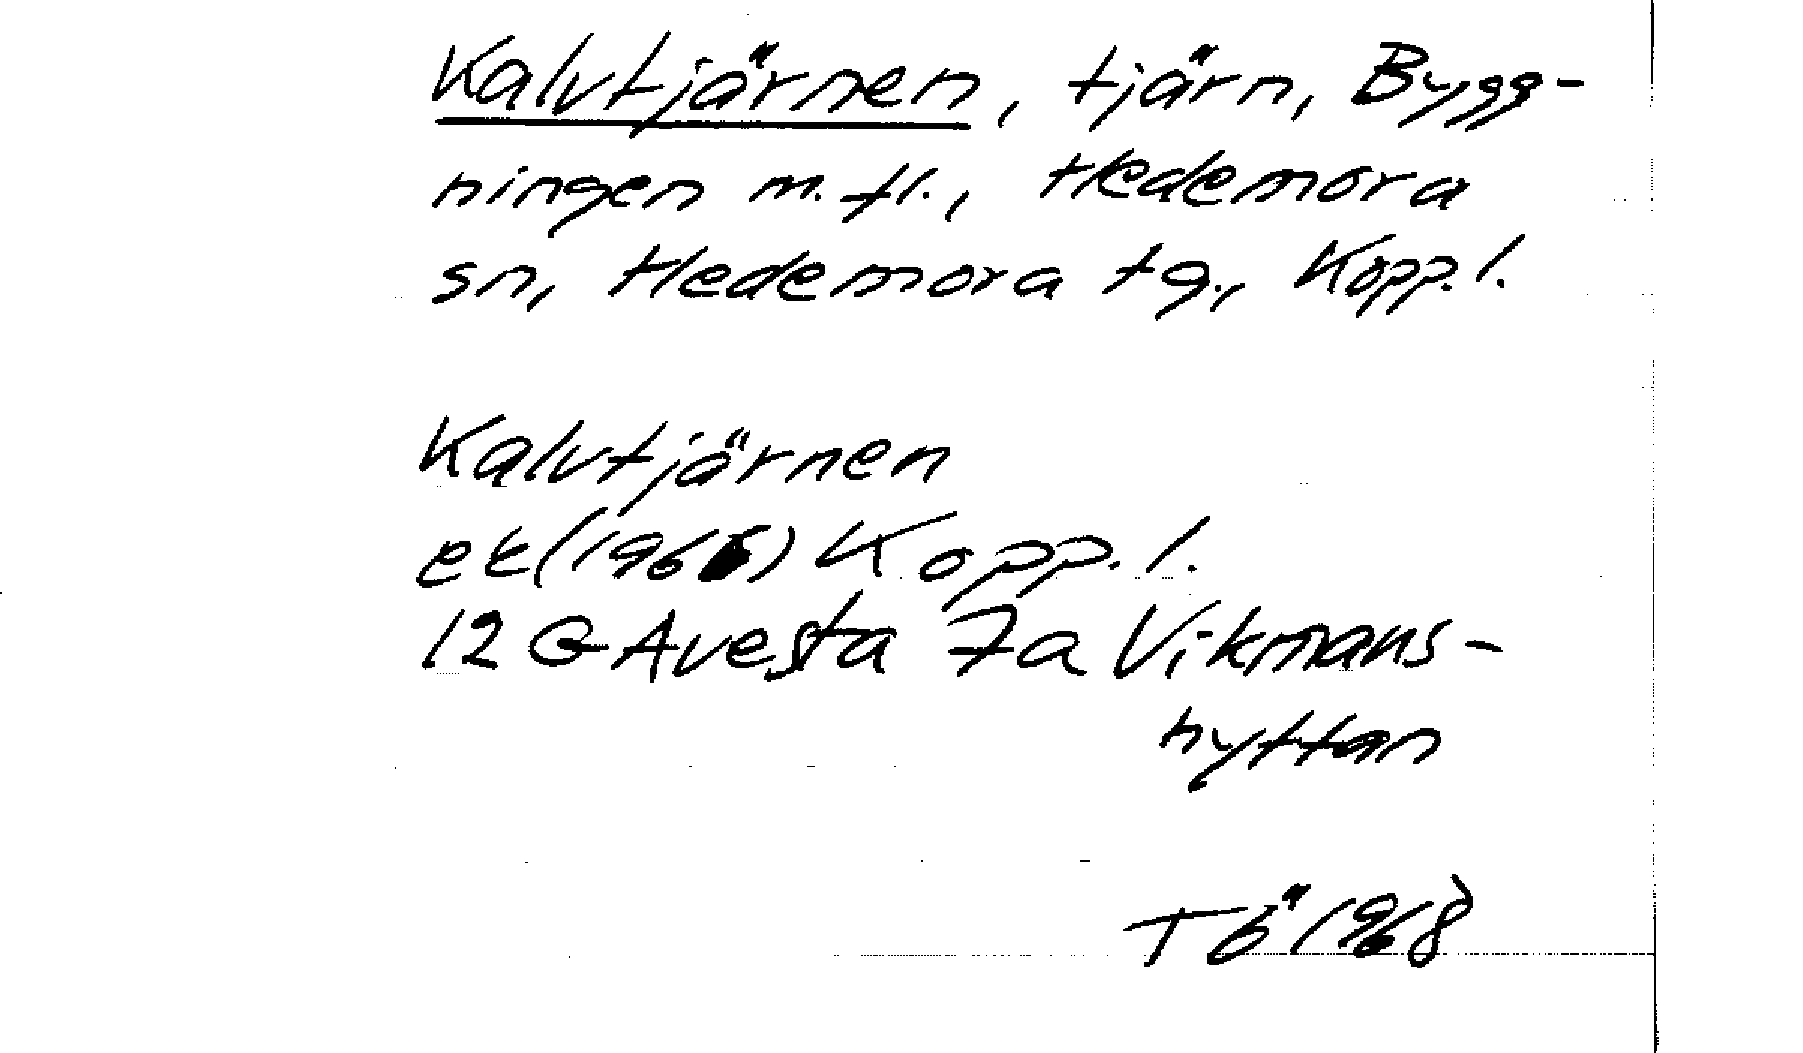 Kalvtjärnen, tjärn, Bygg-
ningen m.fl., Hedemora
sn, Hedemora tg., Kopp.l.
Kalvtjärnen
ek (1966) Kopp.l.
12 G Avesta 7a Vikmans-
hyttan
TÖ 1968